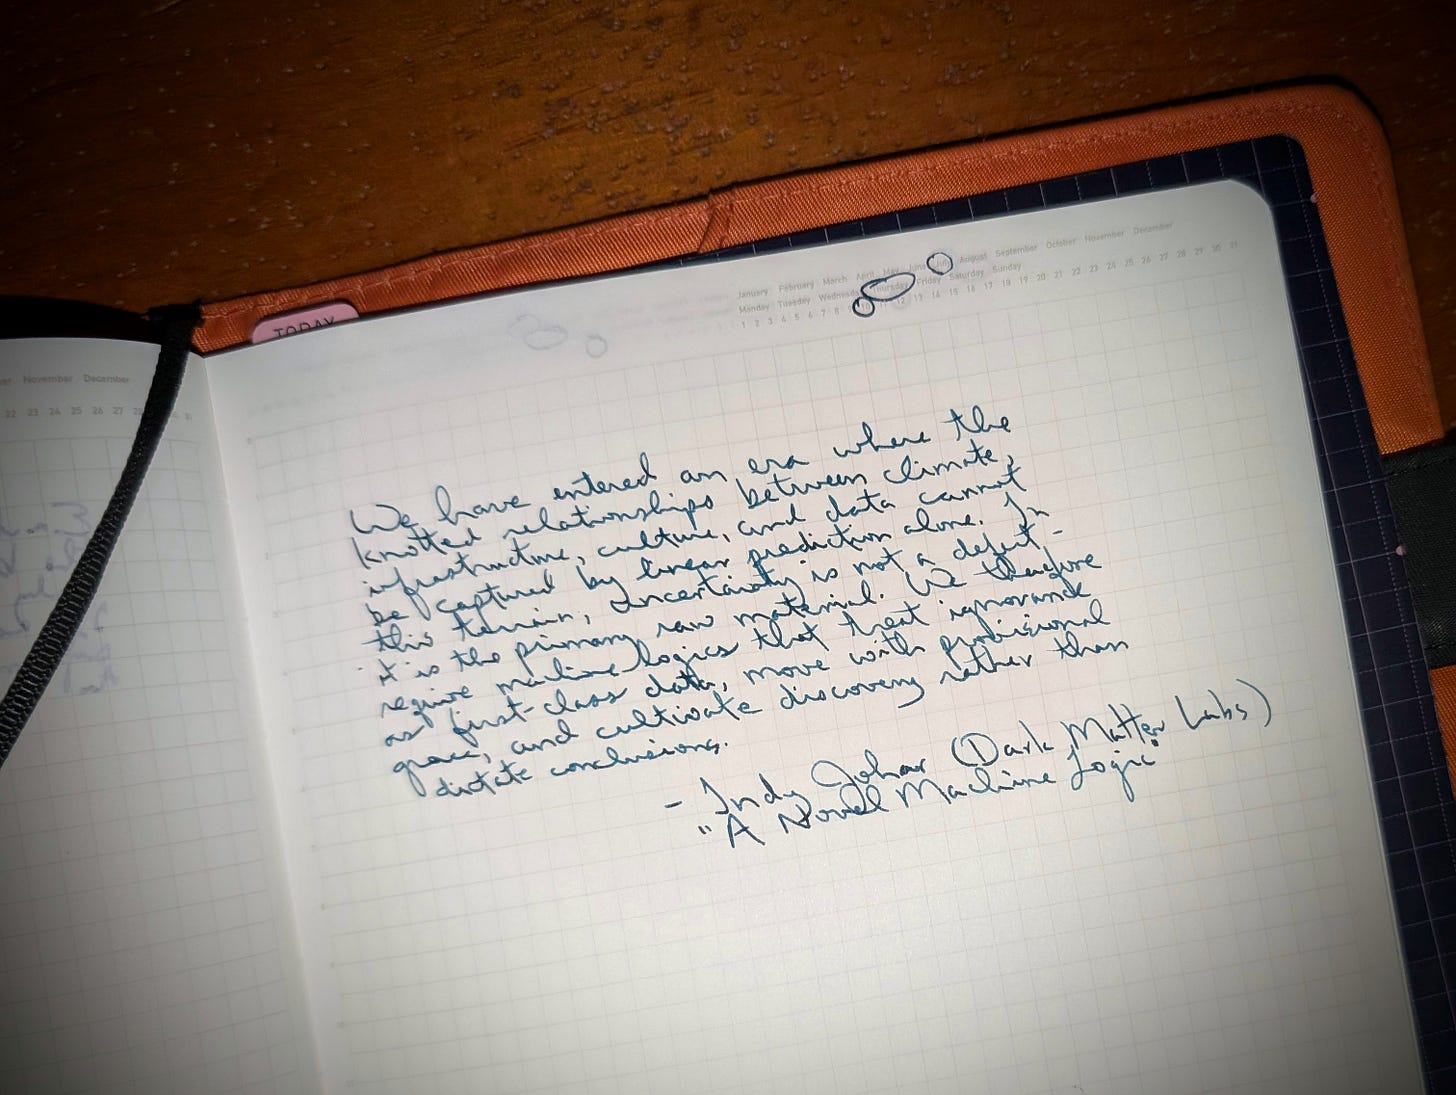 TODAY
November December
22 23 24 25 26 27
January February March April May June July August September October November December
Monday Tuesday Wednesday Thursday Friday Saturday Sunday
1 2 3 4 5 6 7 8 9 10 11 12 13 14 15 16 17 18 19 20 21 22 23 24 25 26 27 28 29 30 31
We have entered an era where the
knotted relationships between climate,
infrastructure, culture, and data cannot
be captured by linear prediction alone. In
this terrain, uncertainty is not a defect -
it is the primary raw material. We therefore
require machine logics that treat ignorance
as first-class data, move with provisional
grace, and cultivate discovery rather than
dictate conclusions.
- Indy Johar (Dark Matter Labs)
"A Novel Machine Logic"